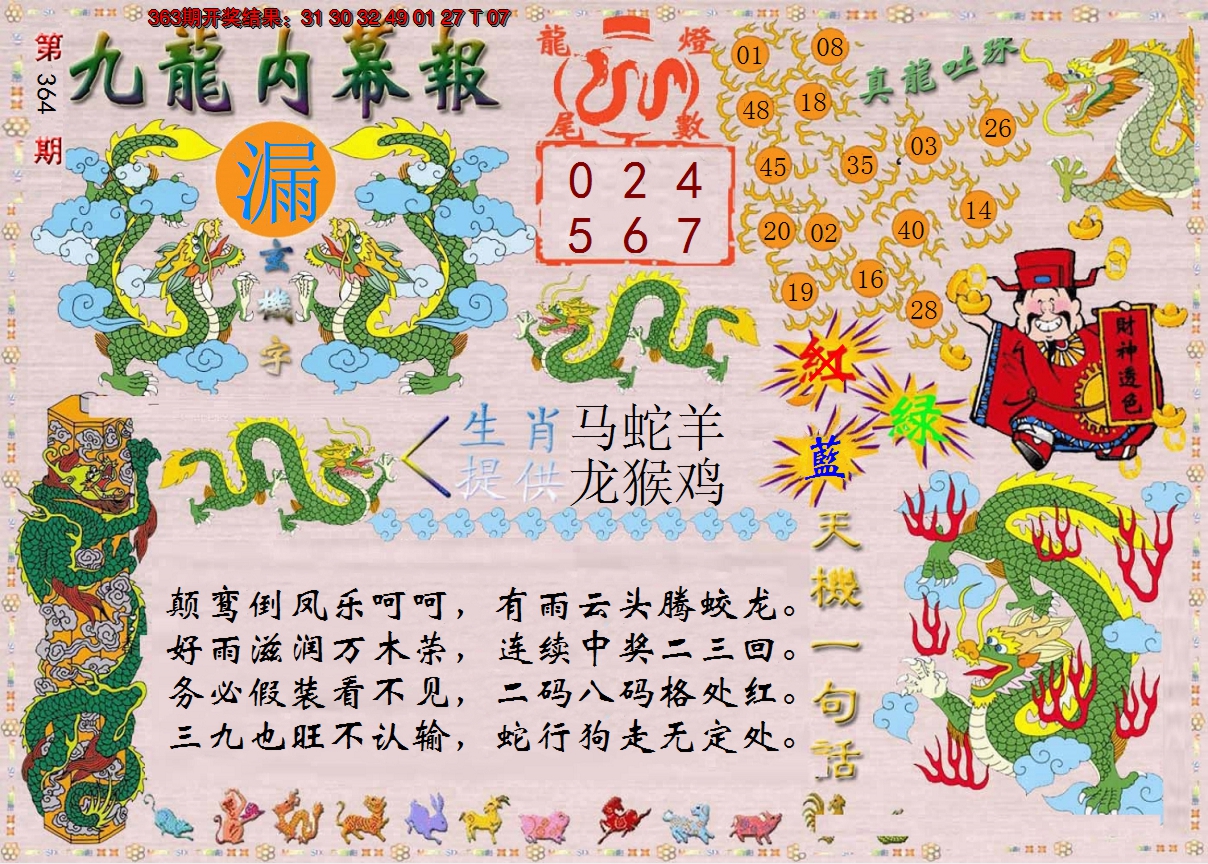 363期开奖结果：31 30 32 49 01 27 T 07
第364期
九龍内幕報
漏
玄機字
龍燈尾數
0 2 4
5 6 7
真龍吐珠
01 08
48 18
45 35 03 26
20 02 40 14
19 16 28
財神透色
紅
綠
藍
生肖提供
马蛇羊
龙猴鸡
天機一句話
颠鸾倒凤乐呵呵，有雨云头腾蛟龙。
好雨滋润万木荣，连续中奖二三回。
务必假装看不见，二码八码格处红。
三九也旺不认输，蛇行狗走无定处。